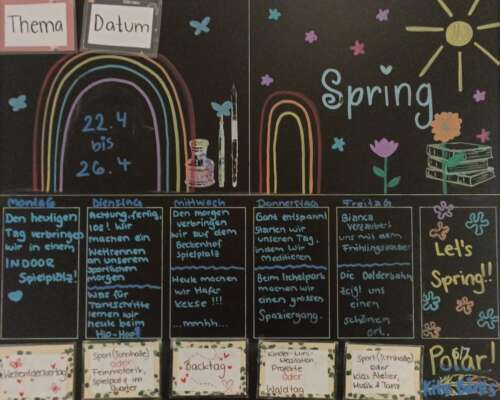 Thema
Datum
22.4
bis
26.4
Spring
Montag
Den heutigen
Tag verbringen
wir in einem
INDOOR
Spielplatz!
Dienstag
Achtung, fertig,
los! Wir
machen ein
Wettrennen
an unserem
sportlichen
morgen
Was für
Tanzschritte
lernen wir
heute beim
Hip-Hop?
Mittwoch
Den morgen
verbringen
wir auf dem
Beckenhof
Spielplatz
Heute machen
wir Hafer
Kekse!!!
...mmhh...
Donnerstag
Ganz entspannt
starten wir
unseren Tag,
indem wir
meditieren
Beim Irchelpark
machen wir
einen grossen
Spaziergang.
Freitag
Bianca
verzaubert
uns mit dem
Frühlingszauber
Die Dolderbahn
zeigt uns
einen
schönen
Ort.
Let's
Spring!!
Weltentdeckertag
Sport (Turnhalle)
oder
Feinmotorik,
Spielpold im
Quartier
Backtag
Kinder-Lunch
Projekte
oder
Waldtag
Sport (Turnhalle)
oder
Kids Atelier,
Musik & Tanz
Polar!
6/7
Kids